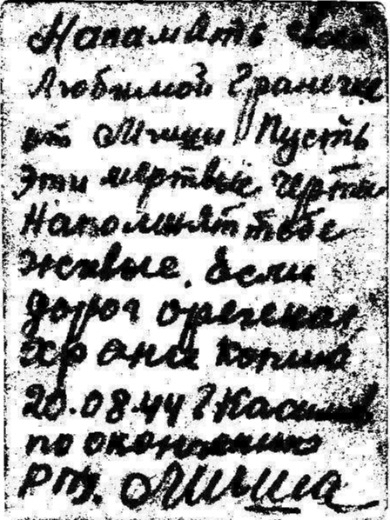 Напамять
Любимой Гранечке
от Миши Пусть
эти мертвые черты
Напомнят тебе
живые. Если
дорог орегенал
храни копию
20.08.44 г Касимов
по окончанию
РПУ. Миша